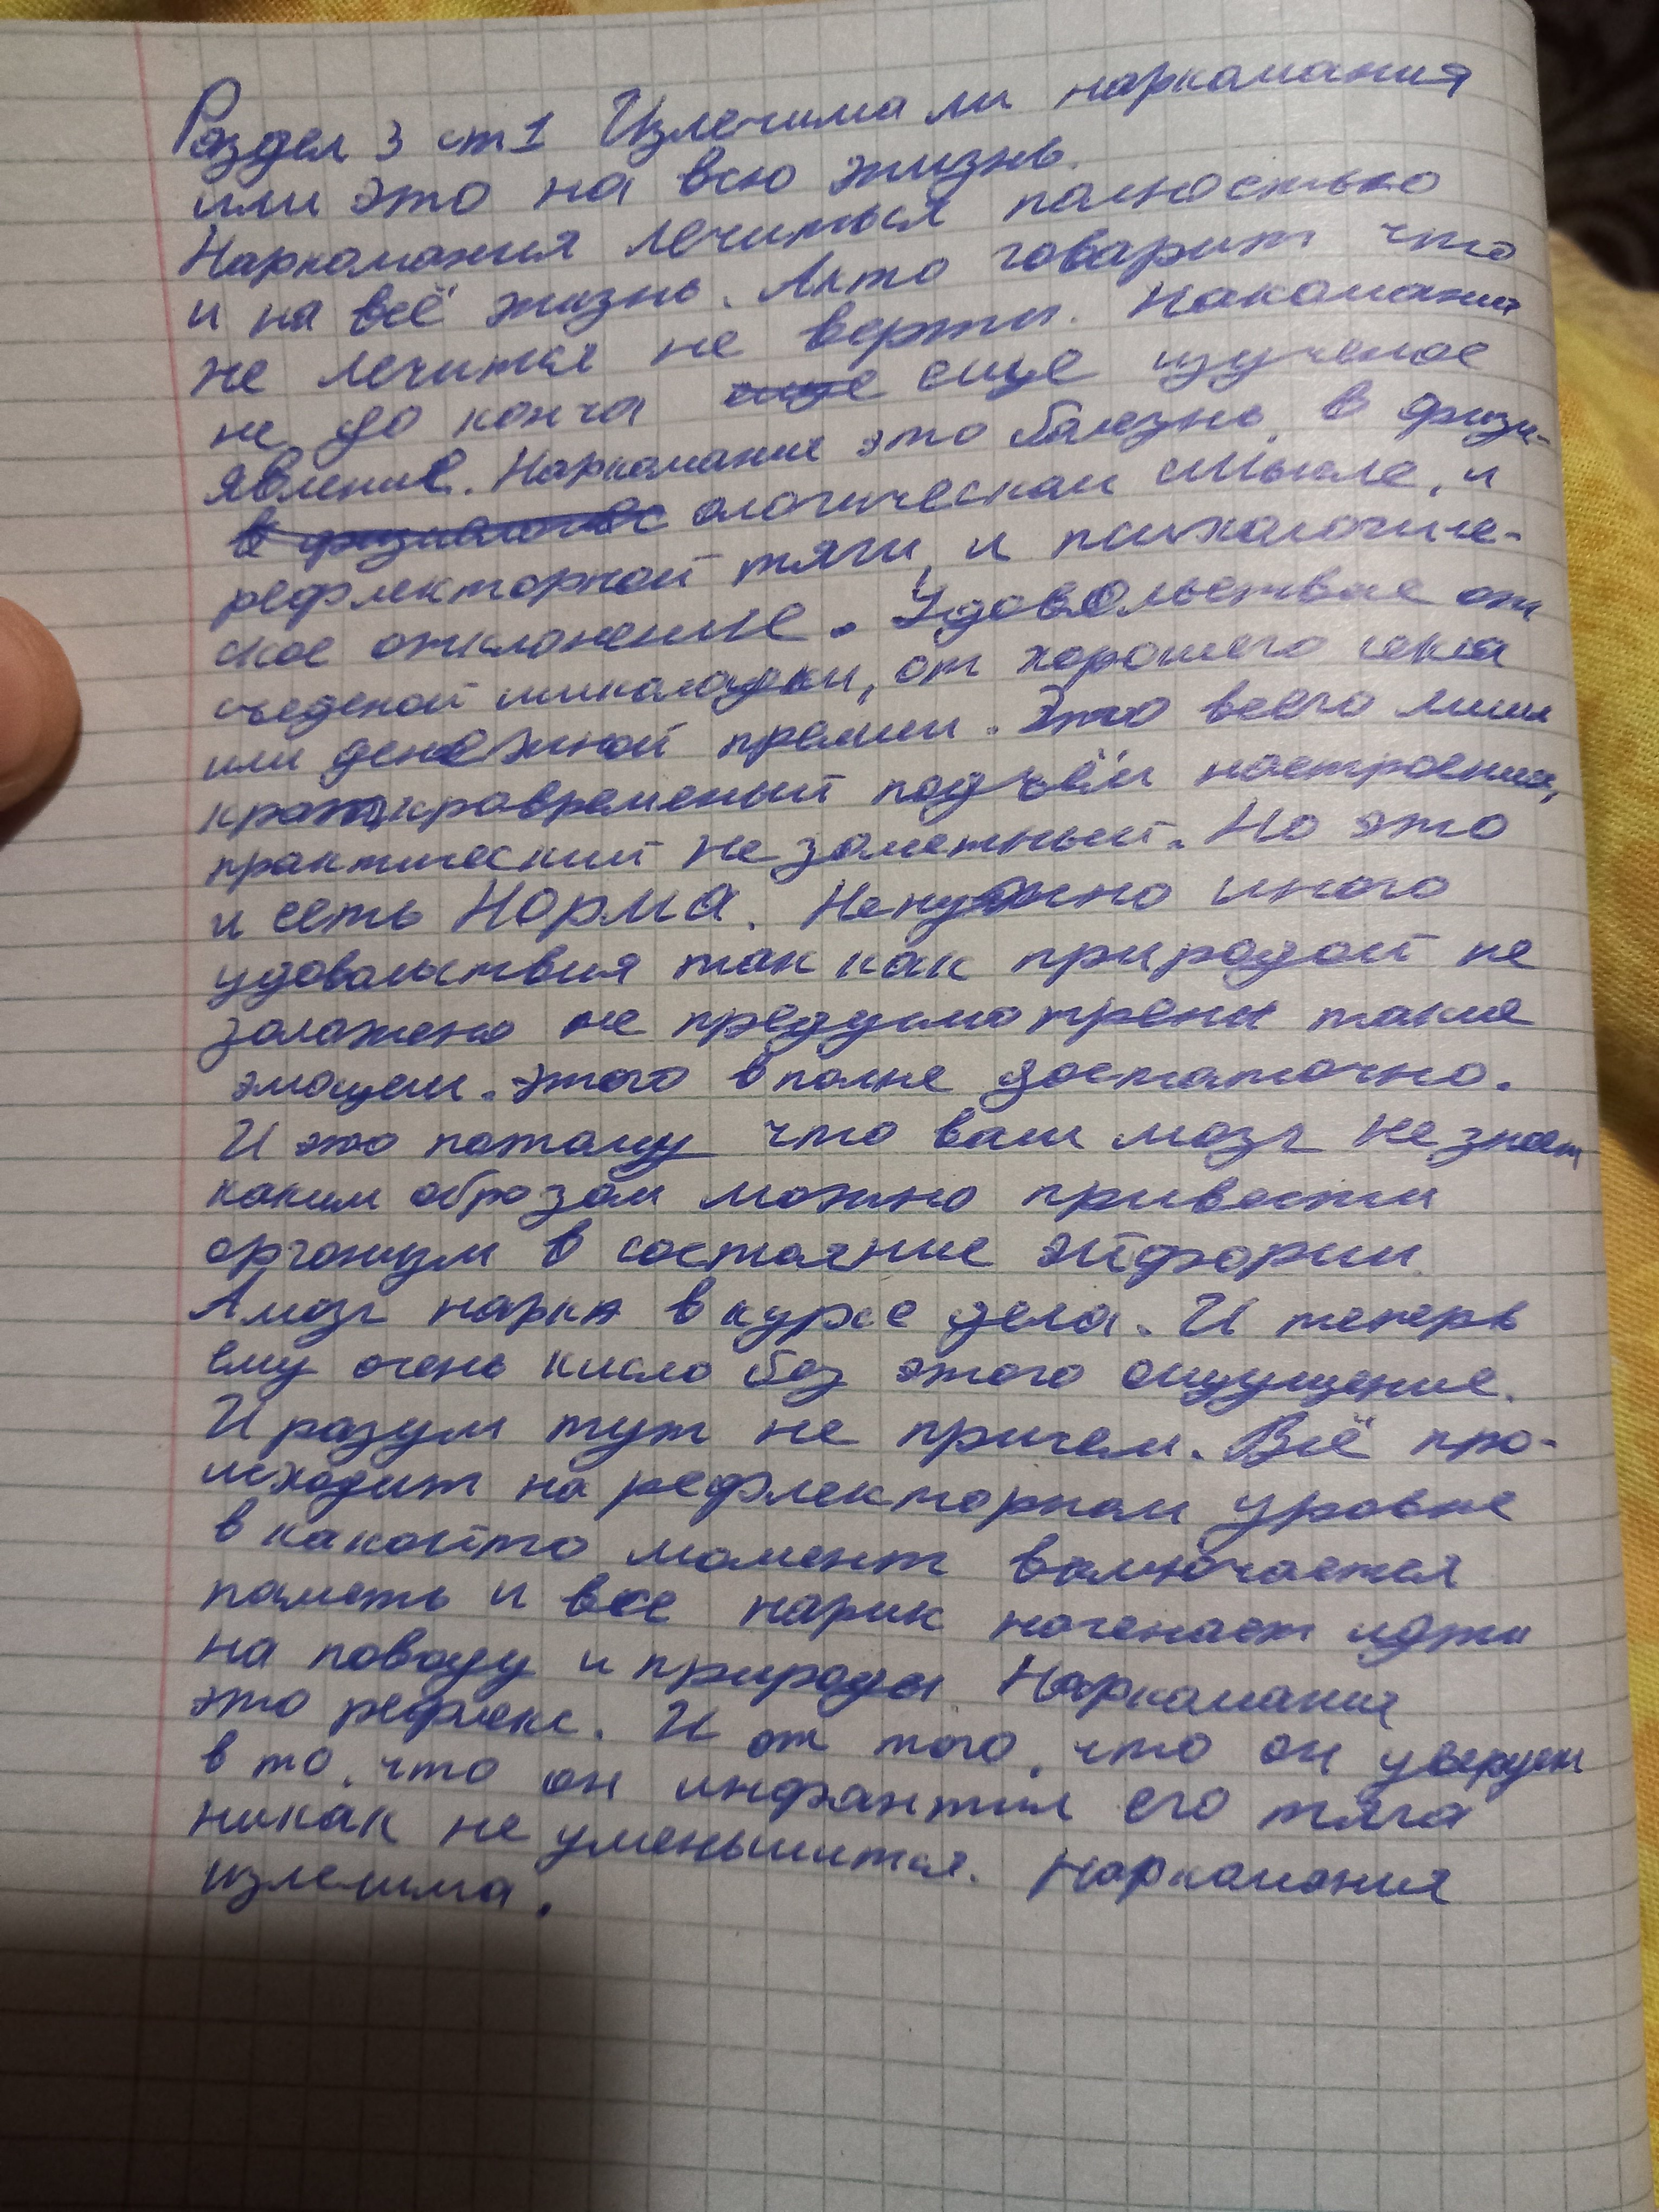 Раздел 3 ст1 Излечима ли наркомания
или это на всю жизнь.
Наркомания лечиться полностью
и на всё жизнь. Акто говарит что
не лечится не верти. Накомания
не до конча еще изученое
явление. Наркомание это болезнь в физи-
ологическом смысле, и
рефлекторной тяги, и психологиче-
ское отклонение. Удовольствие от
съеденой шиколадки, от хорошего секса
или денежной премии. Это всего лишь
краткровременый подъём настроения,
практический не заметный. Но это
и есть Норма. Ненужно иного
удовольствия так как природой не
заложено не предусмотрены такие
эмоции. этого вполне достаточно.
И это потому что ваш мозг не знает
каким образом можно привести
организм в состояние эйфории
А мозг нарка в курсе дела. И теперь
ему очень кисло без этого ощущение.
И разум тут не причем. Всё про-
исходит на рефлекторном уровне
в какойто момент включается
память и все нарик наченает идти
на поводу и природы Наркомания
это рефлекс. И от того, что он уверуем
в то, что он инфантил его тяга
никак не уменьшится. Наркомания
излечима.